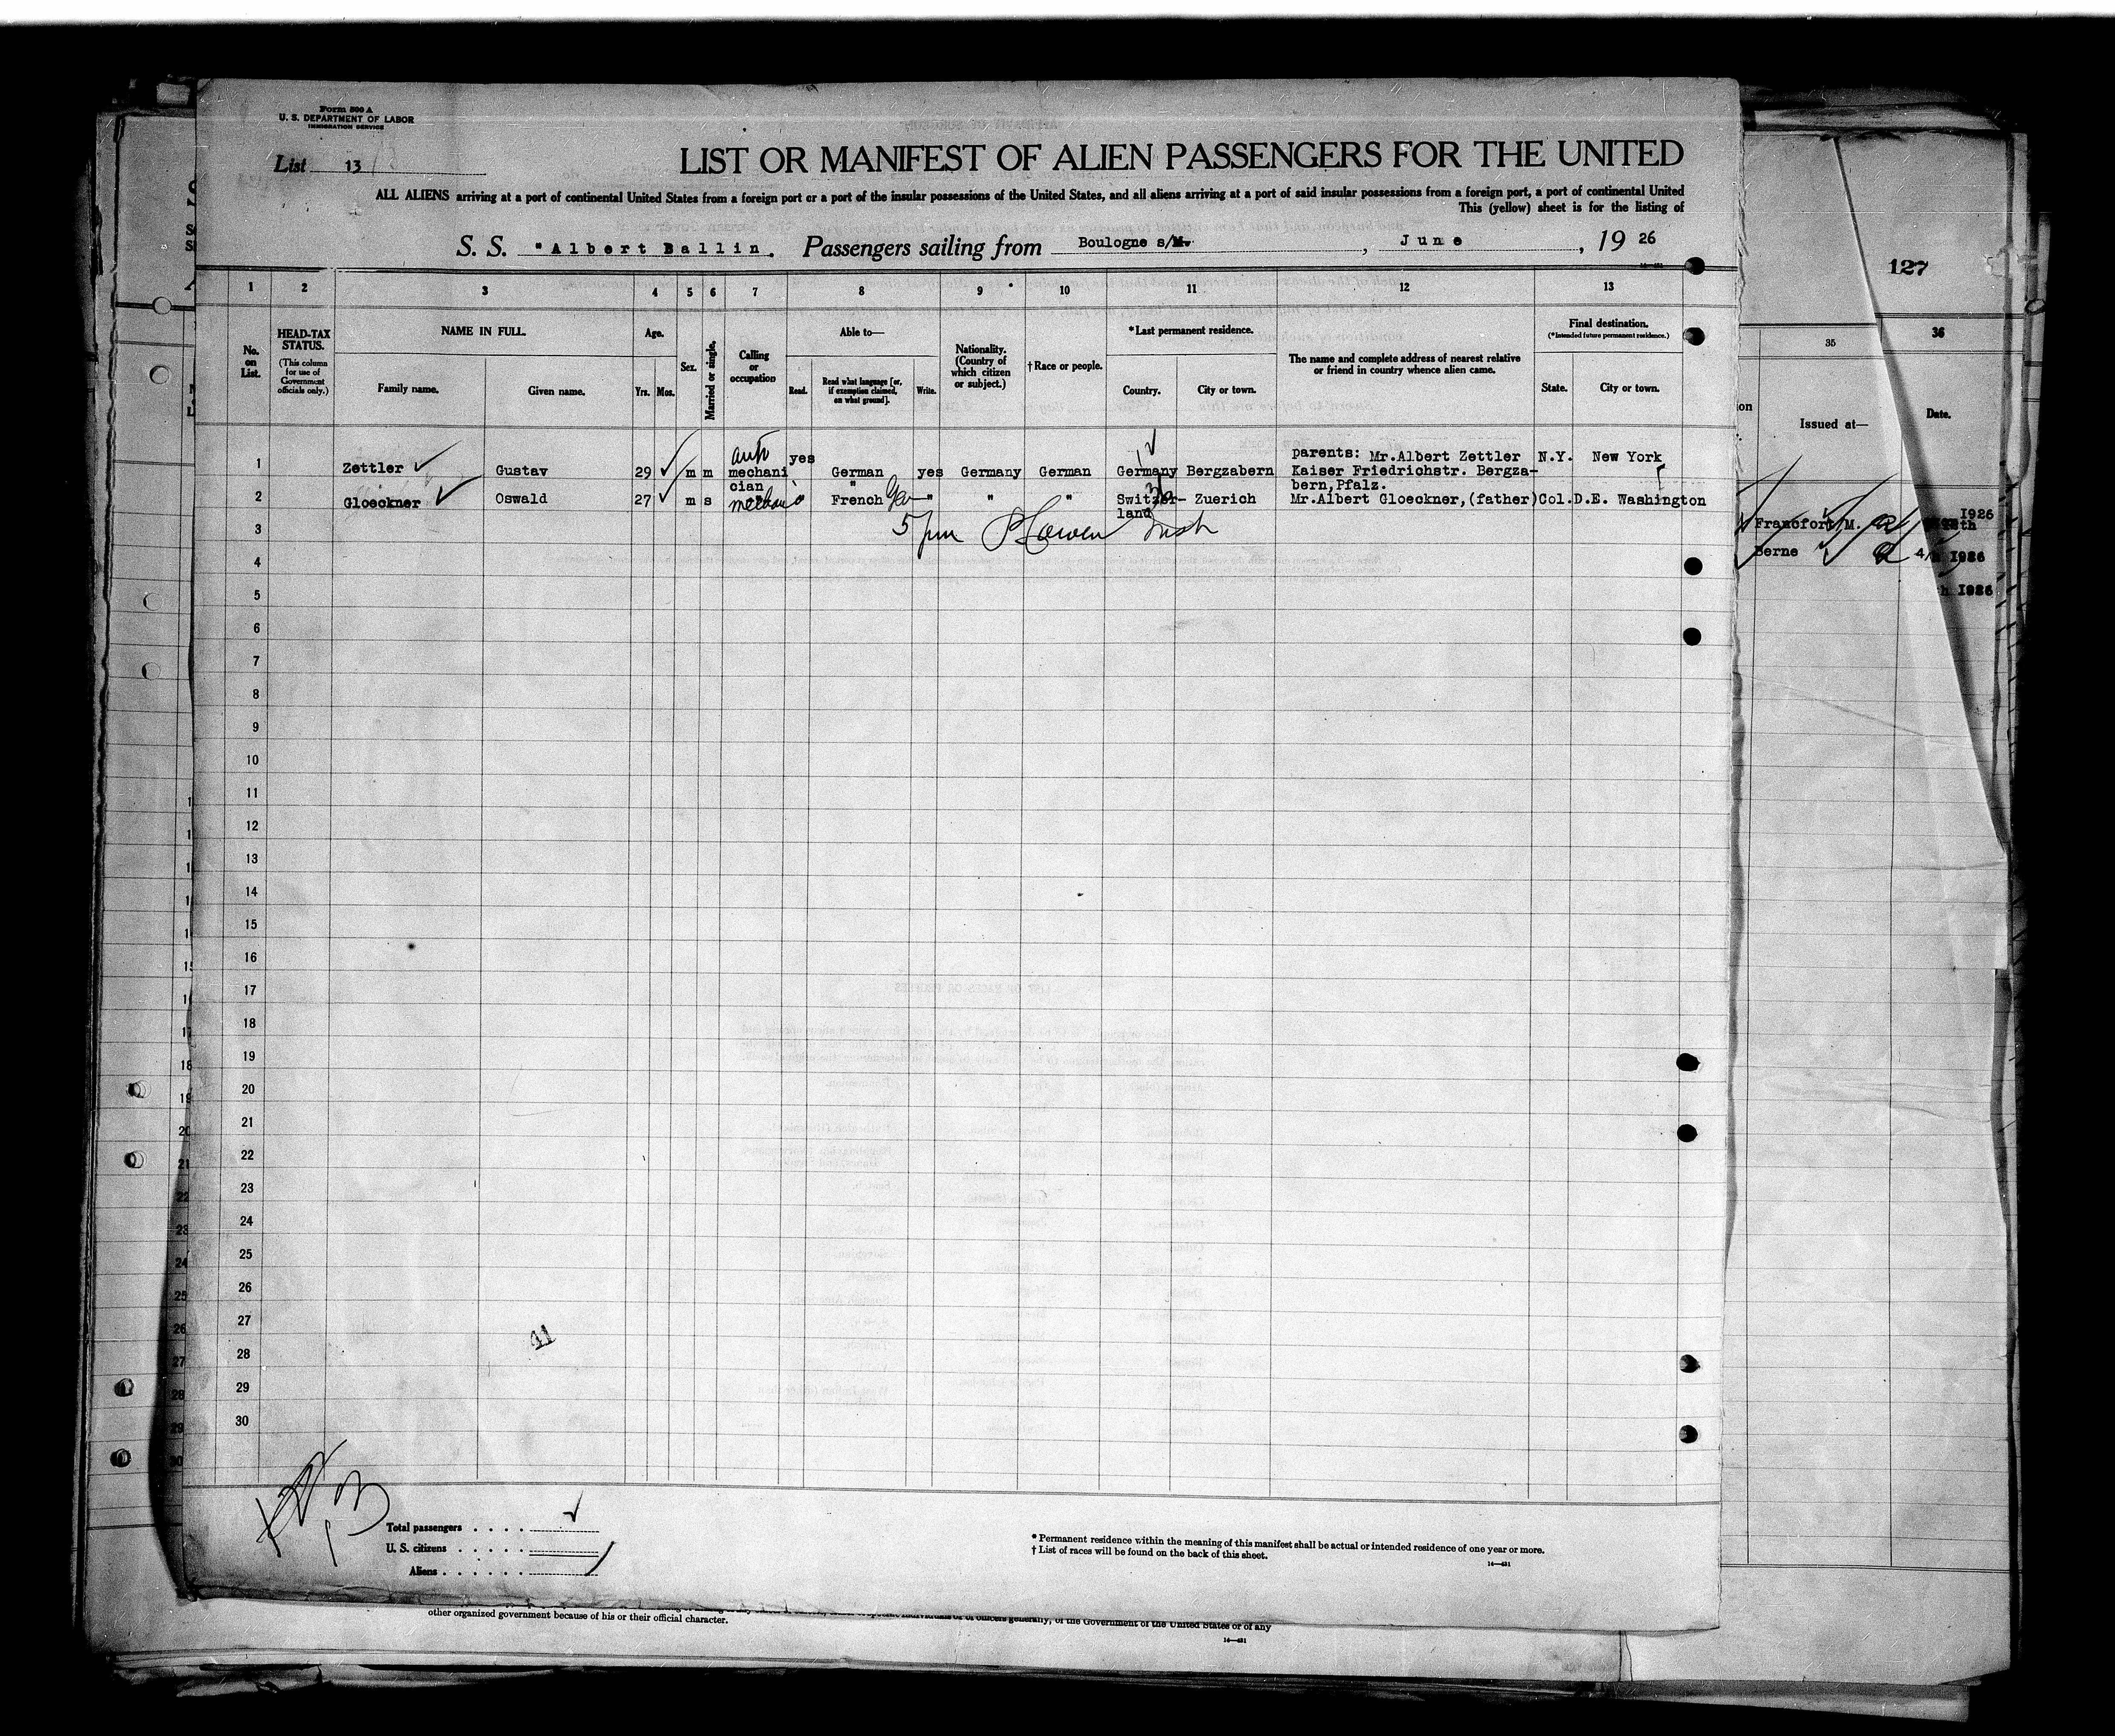 Form 500 A
U. S. DEPARTMENT OF LABOR
IMMIGRATION SERVICE
List 13
LIST OR MANIFEST OF ALIEN PASSENGERS FOR THE UNITED
ALL ALIENS arriving at a port of continental United States from a foreign port or a port of the insular possessions of the United States, and all aliens arriving at a port of said insular possessions from a foreign port, a port of continental United
This (yellow) sheet is for the listing of
S. S. "Albert Ballin. Passengers sailing from Boulogne s/M., June, 19 26
127
1 2 3 4 5 6 7 8 9 10 11 12 13
35 36
No. on List.
HEAD-TAX STATUS.
(This column for use of Government officials only.)
NAME IN FULL.
Family name. Given name.
Age.
Yrs. Mos.
Sex.
Married or single.
Calling or occupation
Able to—
Read. Read what language [or, if exemption claimed, on what ground]. Write.
Nationality. (Country of which citizen or subject.)
†Race or people.
*Last permanent residence.
Country. City or town.
The name and complete address of nearest relative or friend in country whence alien came.
Final destination.
(*Intended future permanent residence.)
State. City or town.
Issued at— Date.
1 Zettler Gustav 29 m m auto mechanician yes German yes Germany German Germany Bergzabern parents: Mr.Albert Zettler N.Y. New York
Kaiser Friedrichstr. Bergza-
bern,Pfalz.
2 Gloeckner Oswald 27 m s mechanic " French Ger " " " Switzer-land Zuerich Mr.Albert Gloeckner,(father) Col.D.E. Washington
5 pm
Francfort/M. 1926
Berne 1926
h 1926
3
4
5
6
7
8
9
10
11
12
13
14
15
16
17
18
19
20
21
22
23
24
25
26
27
28
29
30
41
Total passengers . . . .
U. S. citizens . . . . .
Aliens . . . . . .
* Permanent residence within the meaning of this manifest shall be actual or intended residence of one year or more.
† List of races will be found on the back of this sheet.
14—431
other organized government because of his or their official character.
of the Government of the United States or of any
14—431